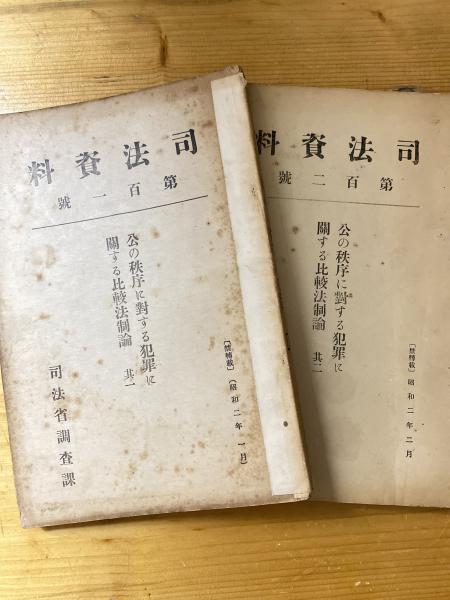 司法資料
第百一號
公の秩序に對する犯罪に
關する比較法制論 其一
〔禁轉載〕(昭和二年一月)
司法省調査課
司法資料
第百二號
公の秩序に對する犯罪に
關する比較法制論 其二
〔禁轉載〕昭和二年二月